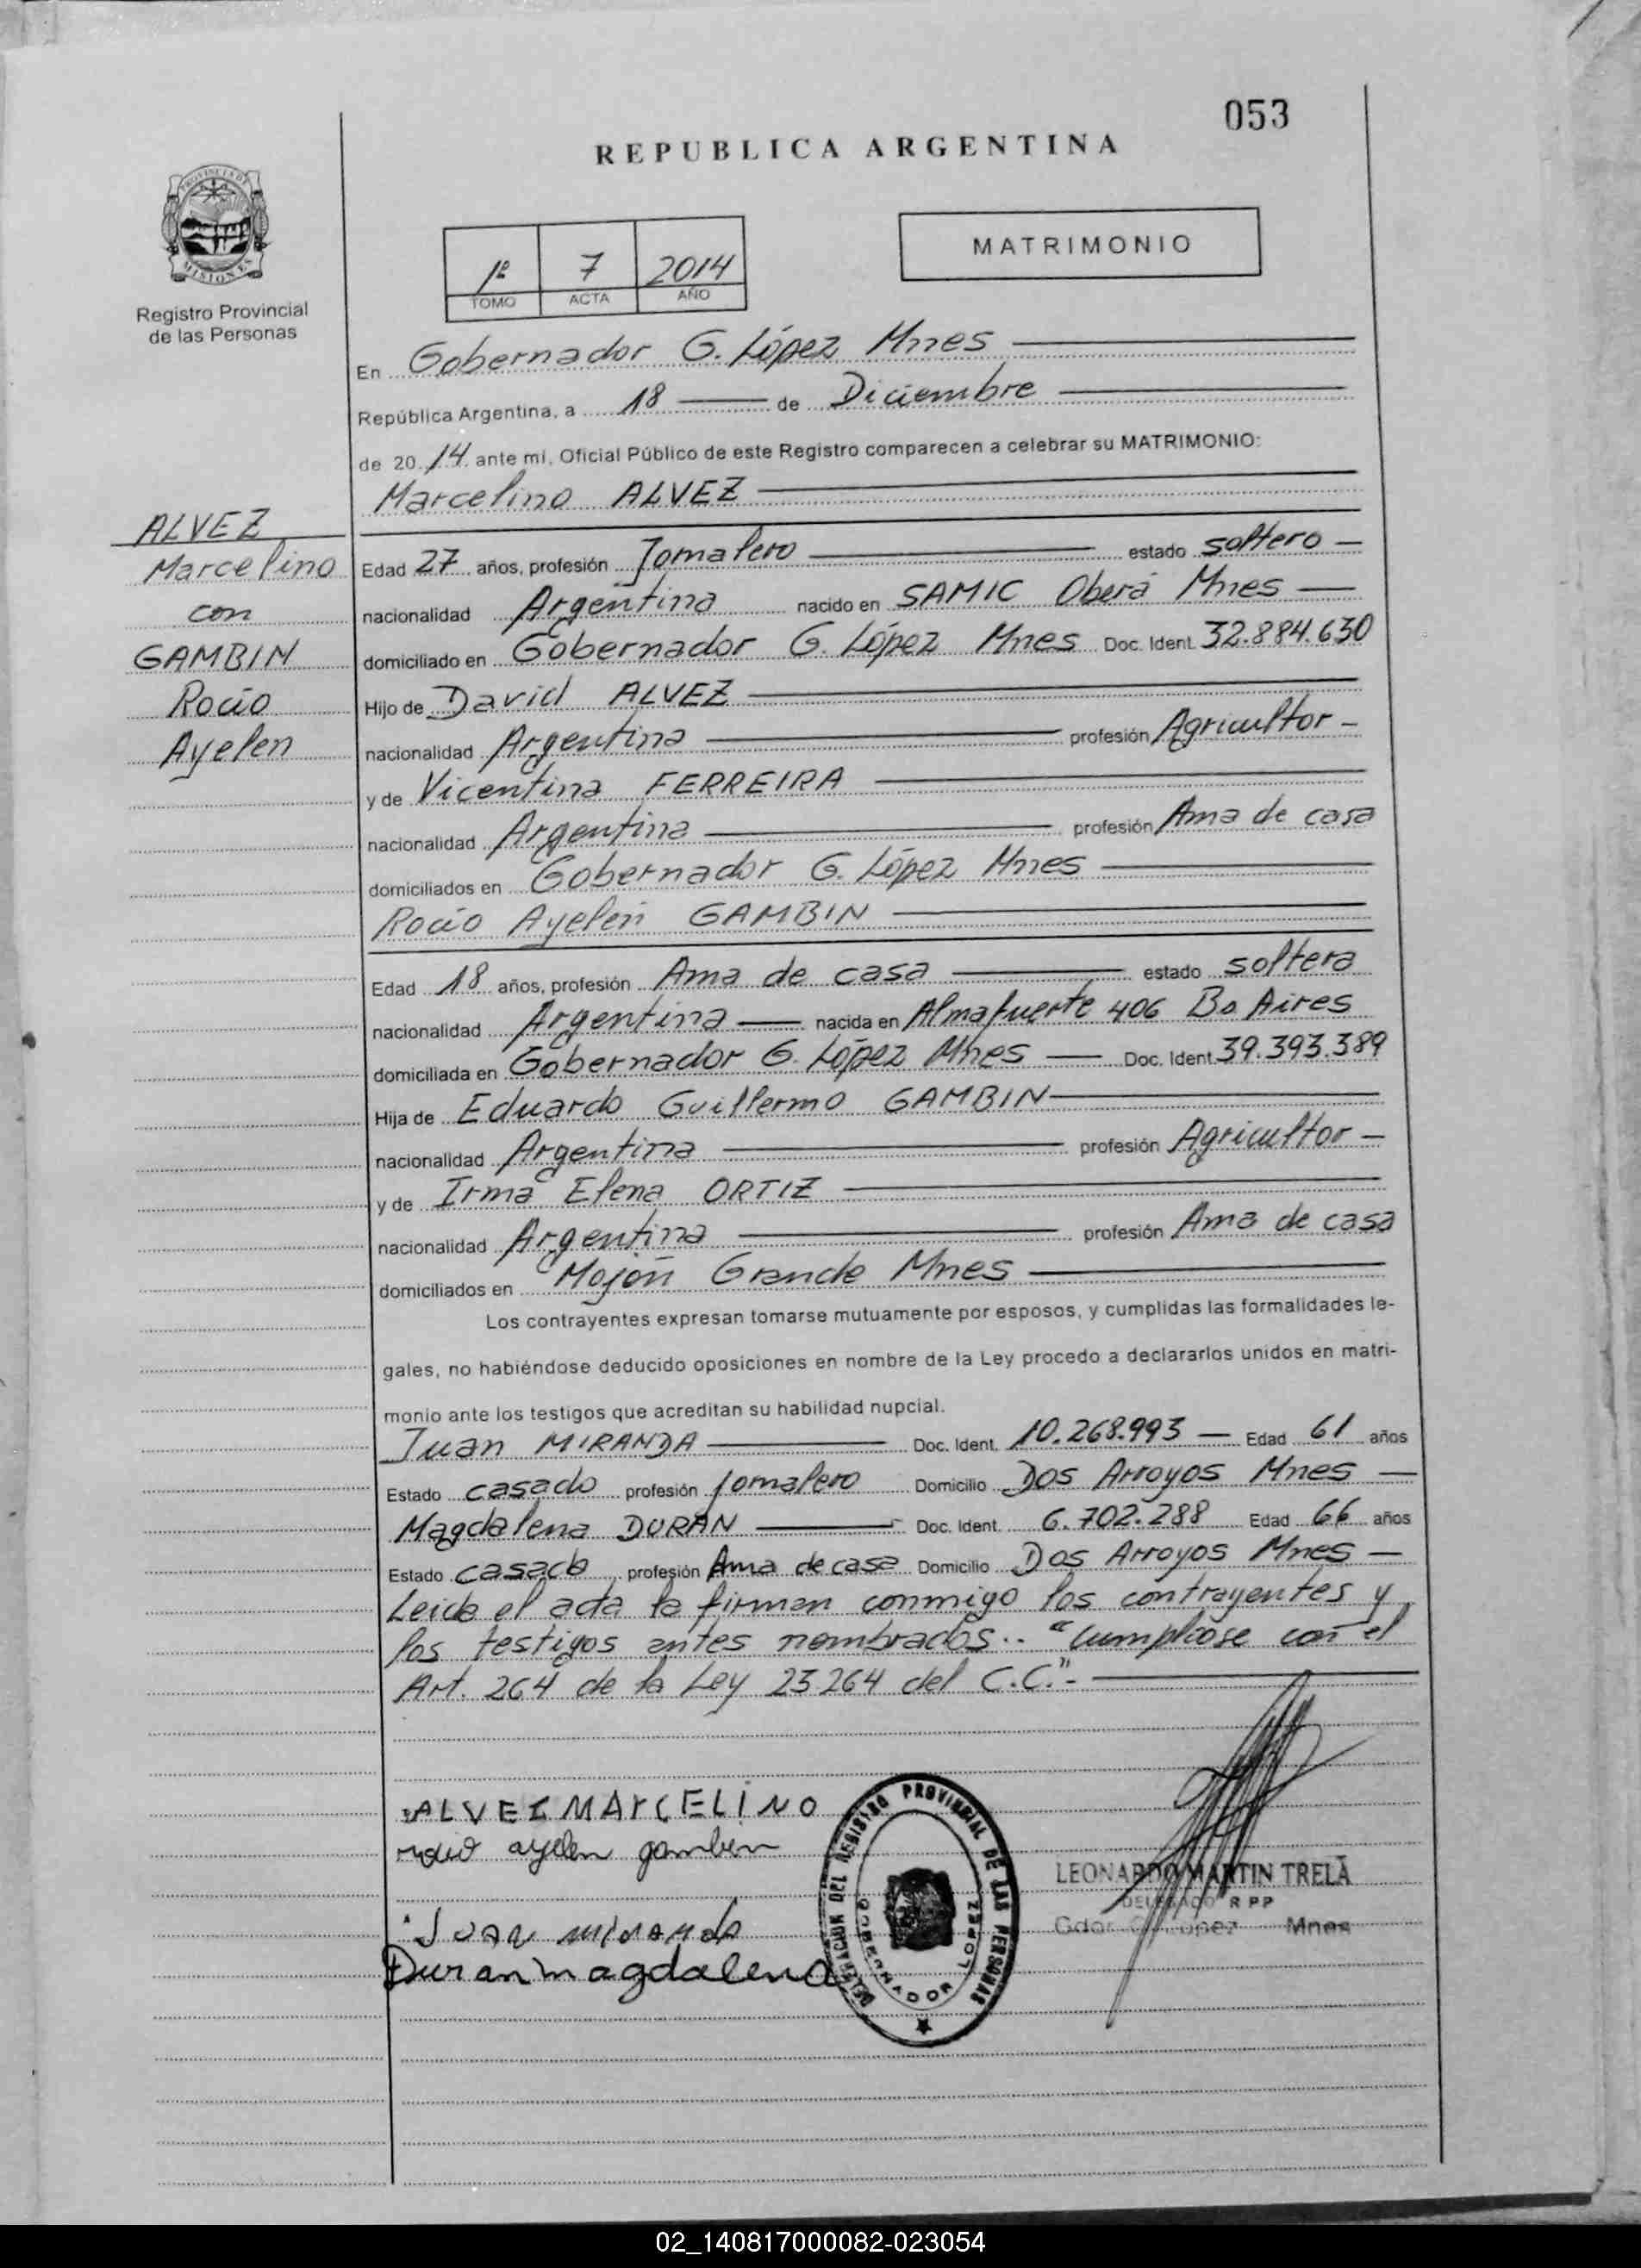 053
REPUBLICA ARGENTINA
PROVINCIA DE
MISIONES
Registro Provincial
de las Personas
1º 7 2014
TOMO ACTA AÑO
MATRIMONIO
En Gobernador G. López Mnes
República Argentina, a 18 de Diciembre
de 20 14 ante mi, Oficial Público de este Registro comparecen a celebrar su MATRIMONIO:
Marcelino ALVEZ
ALVEZ
Marcelino
con
GAMBIN
Rocío
Ayelen
Edad 27 años, profesión Jornalero estado soltero
nacionalidad Argentina nacido en SAMIC Oberá Mnes
domiciliado en Gobernador G. López Mnes Doc. Ident. 32.884.630
Hijo de David ALVEZ
nacionalidad Argentina profesión Agricultor
y de Vicentina FERREIRA
nacionalidad Argentina profesión Ama de casa
domiciliados en Gobernador G. López Mnes
Rocío Ayelén GAMBIN
Edad 18 años, profesión Ama de casa estado soltera
nacionalidad Argentina nacida en Almafuerte 406 Bo Aires
domiciliada en Gobernador G. López Mnes Doc. Ident. 39.393.389
Hija de Eduardo Guillermo GAMBIN
nacionalidad Argentina profesión Agricultor
y de Irma Elena ORTIZ
nacionalidad Argentina profesión Ama de casa
domiciliados en Mojón Grande Mnes
Los contrayentes expresan tomarse mutuamente por esposos, y cumplidas las formalidades le-
gales, no habiéndose deducido oposiciones en nombre de la Ley procedo a declararlos unidos en matri-
monio ante los testigos que acreditan su habilidad nupcial.
Juan MIRANDA Doc. Ident. 10.268.993 Edad 61 años
Estado casado profesión Jornalero Domicilio Dos Arroyos Mnes
Magdalena DURAN Doc. Ident. 6.702.288 Edad 66 años
Estado casado profesión Ama de casa Domicilio Dos Arroyos Mnes
Leída el acta la firman conmigo los contrayentes y
los testigos antes nombrados.. "Cumpliose con el
Art. 264 de la Ley 23.264 del C.C."-
ALVEZ MARCELINO
rocio ayelen gambin
Juan Miranda
Duran magdalena
DELEGACION DEL REGISTRO PROVINCIAL DE LAS PERSONAS
GOBERNADOR LOPEZ
LEONARDO MARTIN TRELA
DELEGADO R P P
Gdor. G. López Mnes
02_140817000082-023054